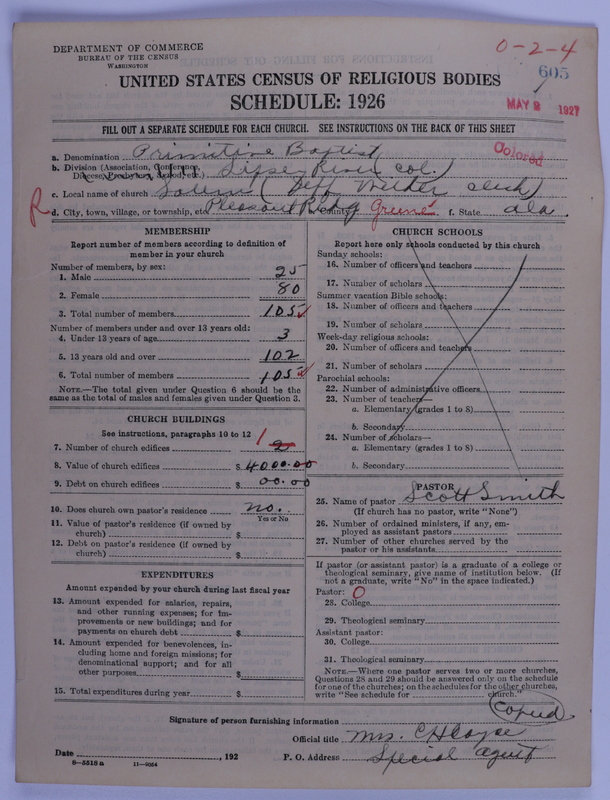 DEPARTMENT OF COMMERCE
BUREAU OF THE CENSUS
WASHINGTON
0-2-4
605
UNITED STATES CENSUS OF RELIGIOUS BODIES
SCHEDULE: 1926
MAY 2 1927
FILL OUT A SEPARATE SCHEDULE FOR EACH CHURCH. SEE INSTRUCTIONS ON THE BACK OF THIS SHEET
Colored
a. Denomination Primitive Baptist
b. Division (Association, Conference, Diocese, Presbytery, Synod, etc.) River Col.)
c. Local name of church Salem (
R d. City, town, village, or township, etc. Pleasant Ridg e. County Greene f. State ala.
MEMBERSHIP
Report number of members according to definition of member in your church
Number of members, by sex:
1. Male 25
2. Female 80
3. Total number of members 105
Number of members under and over 13 years old:
4. Under 13 years of age 3
5. 13 years old and over 102
6. Total number of members 105
NOTE.—The total given under Question 6 should be the same as the total of males and females given under Question 3.
CHURCH BUILDINGS
See instructions, paragraphs 10 to 12
7. Number of church edifices 1 2
8. Value of church edifices $ 4000.00
9. Debt on church edifices $ 00.00
10. Does church own pastor's residence no.
Yes or No
11. Value of pastor's residence (if owned by church) $
12. Debt on pastor's residence (if owned by church) $
EXPENDITURES
Amount expended by your church during last fiscal year
13. Amount expended for salaries, repairs, and other running expenses; for improvements or new buildings; and for payments on church debt $
14. Amount expended for benevolences, including home and foreign missions; for denominational support; and for all other purposes $
15. Total expenditures during year $
CHURCH SCHOOLS
Report here only schools conducted by this church
Sunday schools:
16. Number of officers and teachers
17. Number of scholars
Summer vacation Bible schools:
18. Number of officers and teachers
19. Number of scholars
Week-day religious schools:
20. Number of officers and teachers
21. Number of scholars
Parochial schools:
22. Number of administrative officers
23. Number of teachers—
a. Elementary (grades 1 to 8)
b. Secondary
24. Number of scholars—
a. Elementary (grades 1 to 8)
b. Secondary
PASTOR
25. Name of pastor Scott Smith
(If church has no pastor, write "None")
26. Number of ordained ministers, if any, employed as assistant pastors
27. Number of other churches served by the pastor or his assistants
If pastor (or assistant pastor) is a graduate of a college or theological seminary, give name of institution below. (If not a graduate, write "No" in the space indicated.)
Pastor: 0
28. College
29. Theological seminary
Assistant pastor:
30. College
31. Theological seminary
NOTE.—Where one pastor serves two or more churches, Questions 28 and 29 should be answered only on the schedule for one of the churches; on the schedules for the other churches, write "See schedule for church."
Copied
Signature of person furnishing information
Official title Mrs.
Date , 192 P. O. Address Special agent
8—5518 a 11—9054